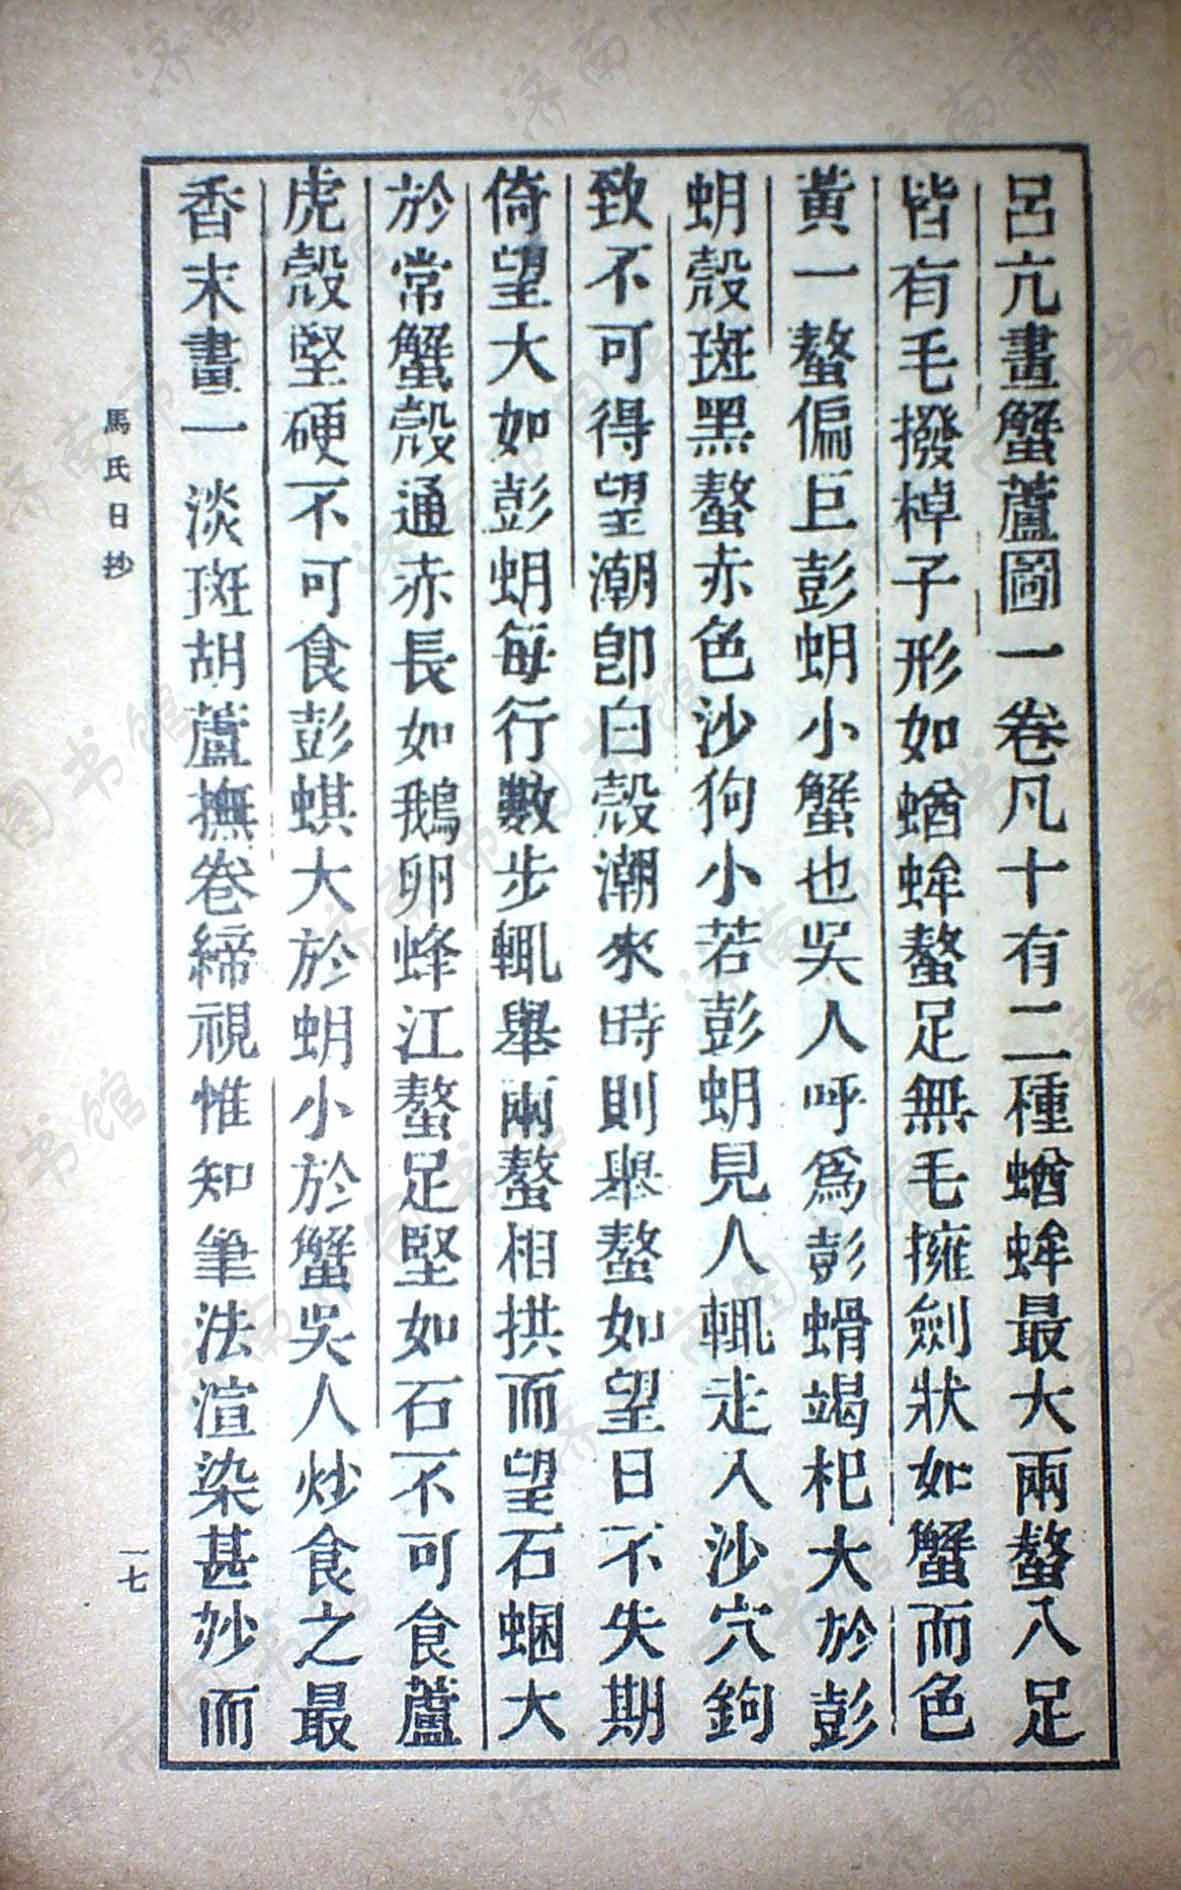 呂亢畫蟹蘆圖一卷凡十有二種蝤蛑最大兩螯八足
皆有毛撥棹子形如蝤蛑螯足無毛擁劍狀如蟹而色
黃一螯偏巨彭蚏小蟹也吳人呼爲彭螖竭朴大於彭
蚏殼斑黑螯赤色沙狗小若彭蚏見人輒走入沙穴鉤
致不可得望潮卽白殼潮來時則舉螯如望日不失期
倚望大如彭蚏每行數步輒舉兩螯相拱而望石蜠大
於常蟹殼通赤長如鵝卵蜂江螯足堅如石不可食蘆
虎殼堅硬不可食彭蜞大於蚏小於蟹吳人炒食之最
香末畫一淡斑胡蘆撫卷締視惟知筆法渲染甚妙而
馬氏日抄
一七
济南市图书馆